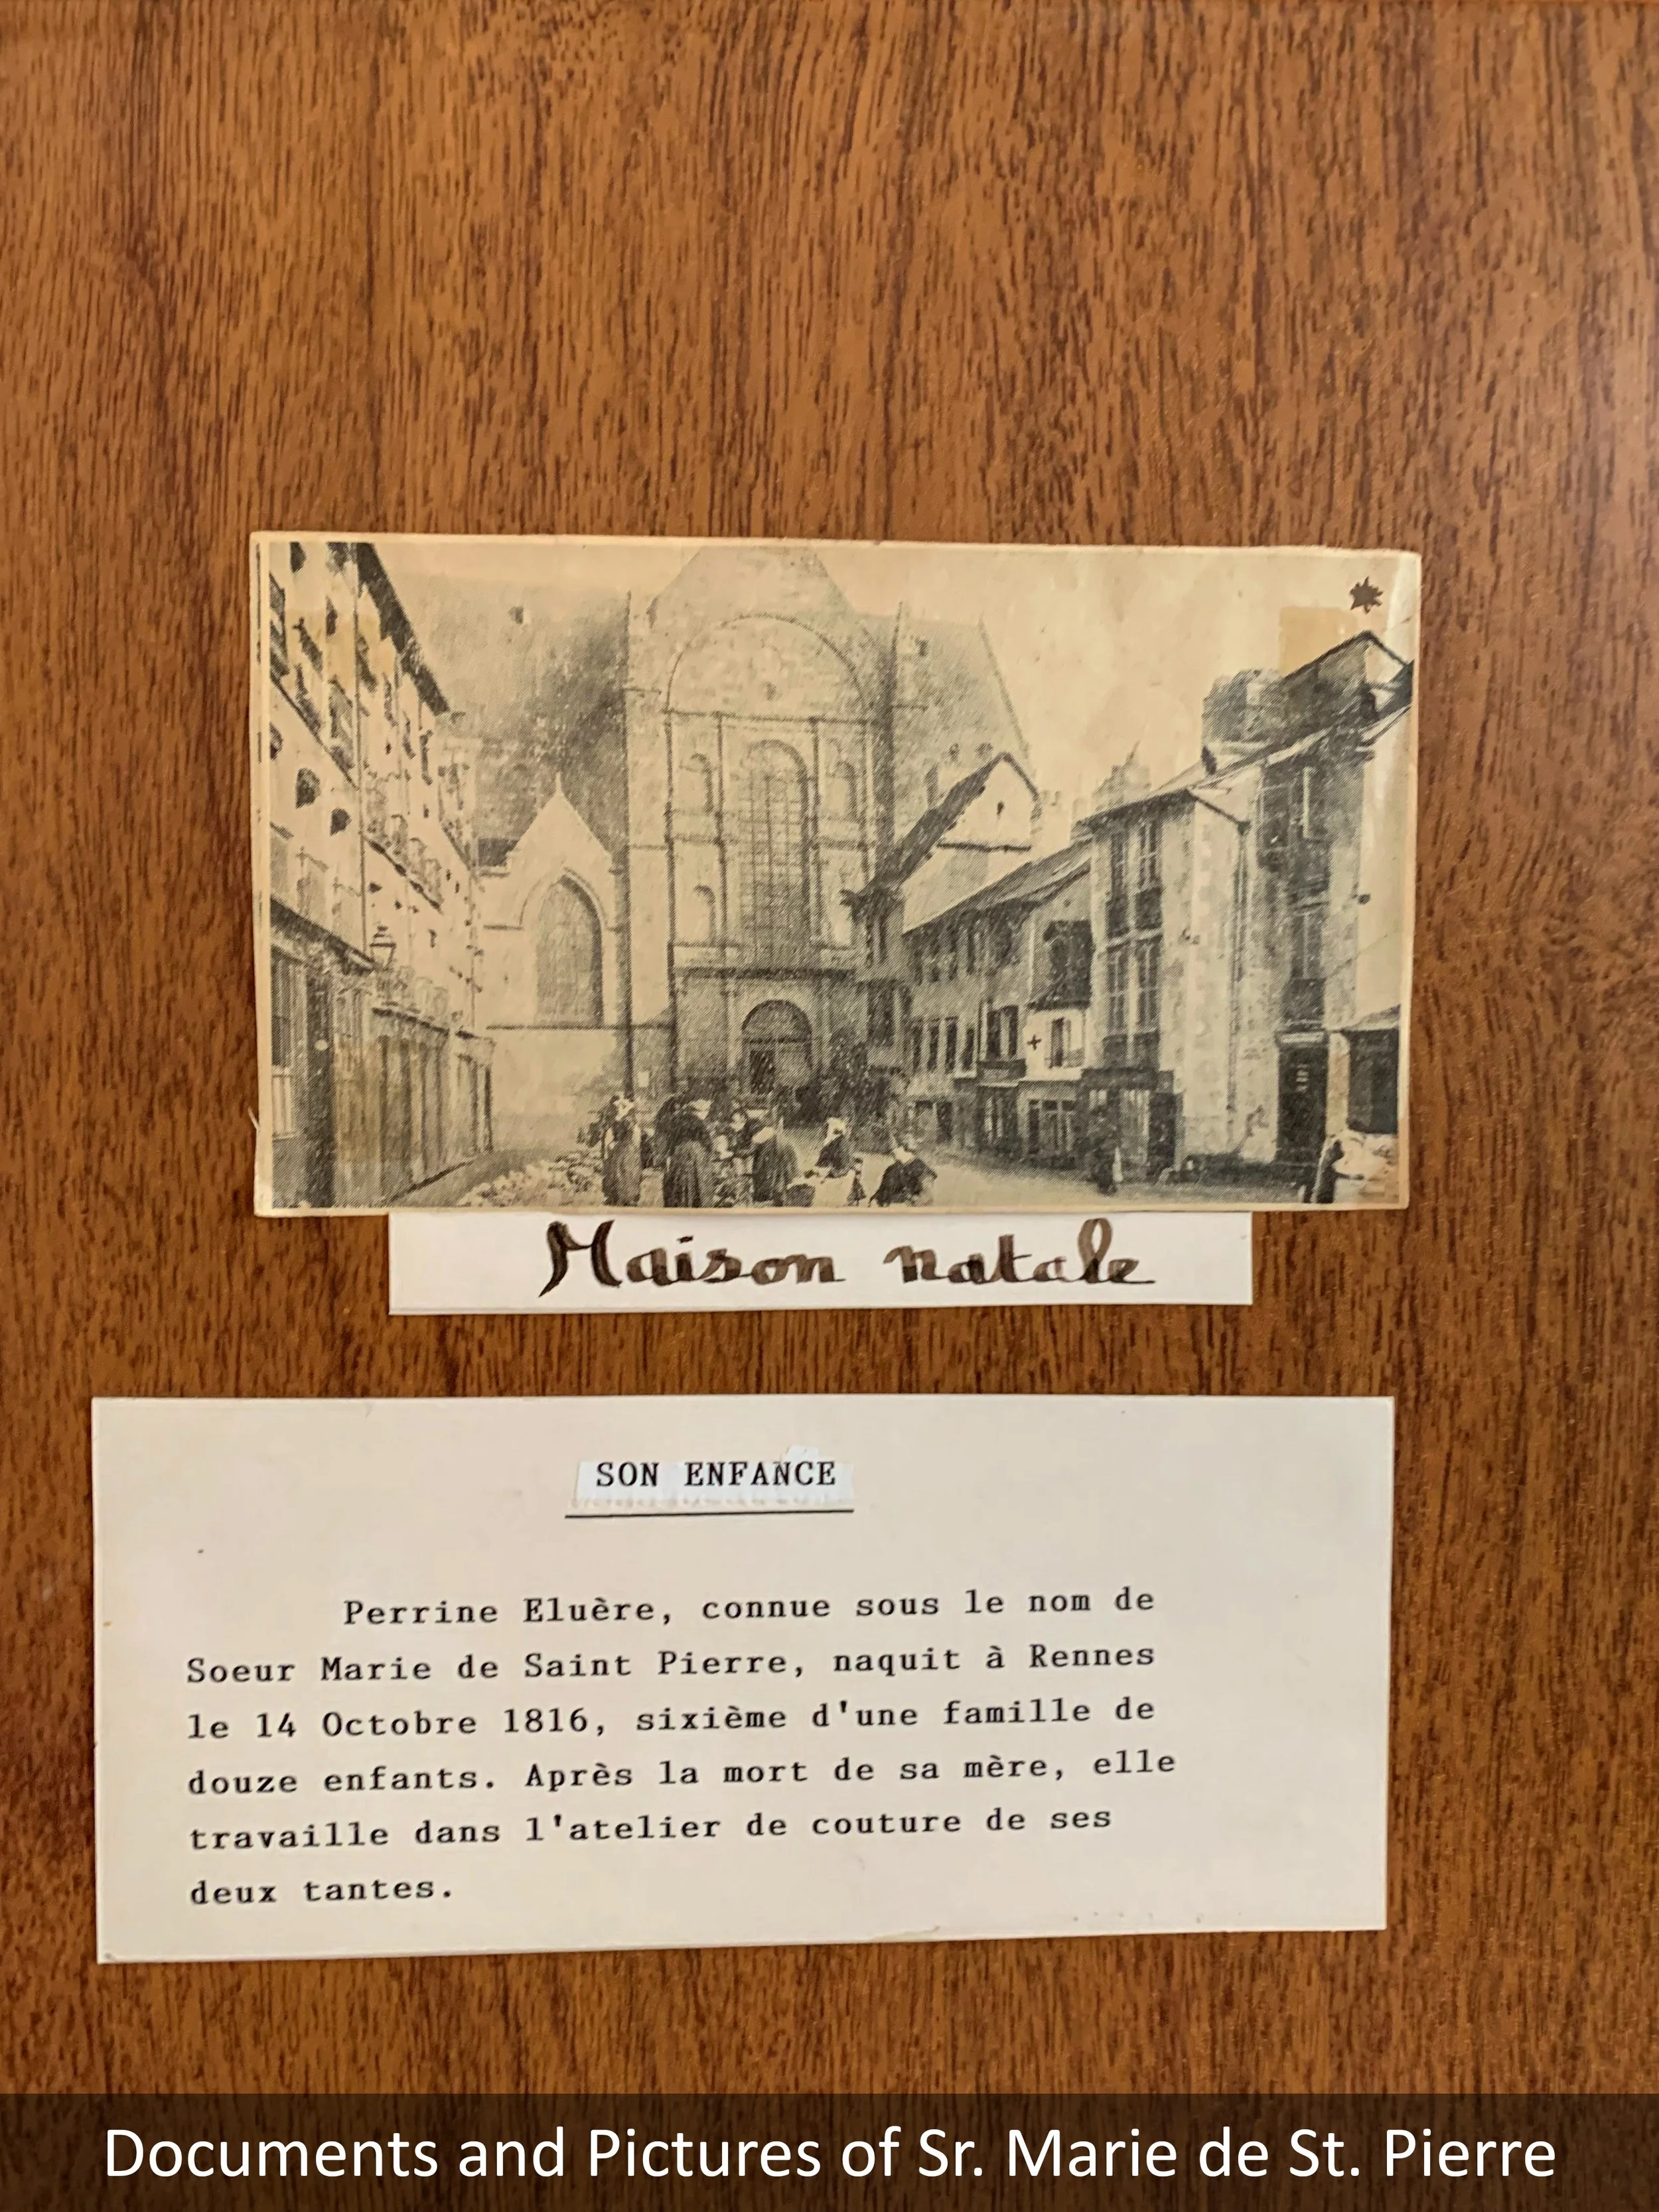 Maison natale
SON ENFANCE
Perrine Eluère, connue sous le nom de
Soeur Marie de Saint Pierre, naquit à Rennes
le 14 Octobre 1816, sixième d'une famille de
douze enfants. Après la mort de sa mère, elle
travaille dans l'atelier de couture de ses
deux tantes.
Documents and Pictures of Sr. Marie de St. Pierre